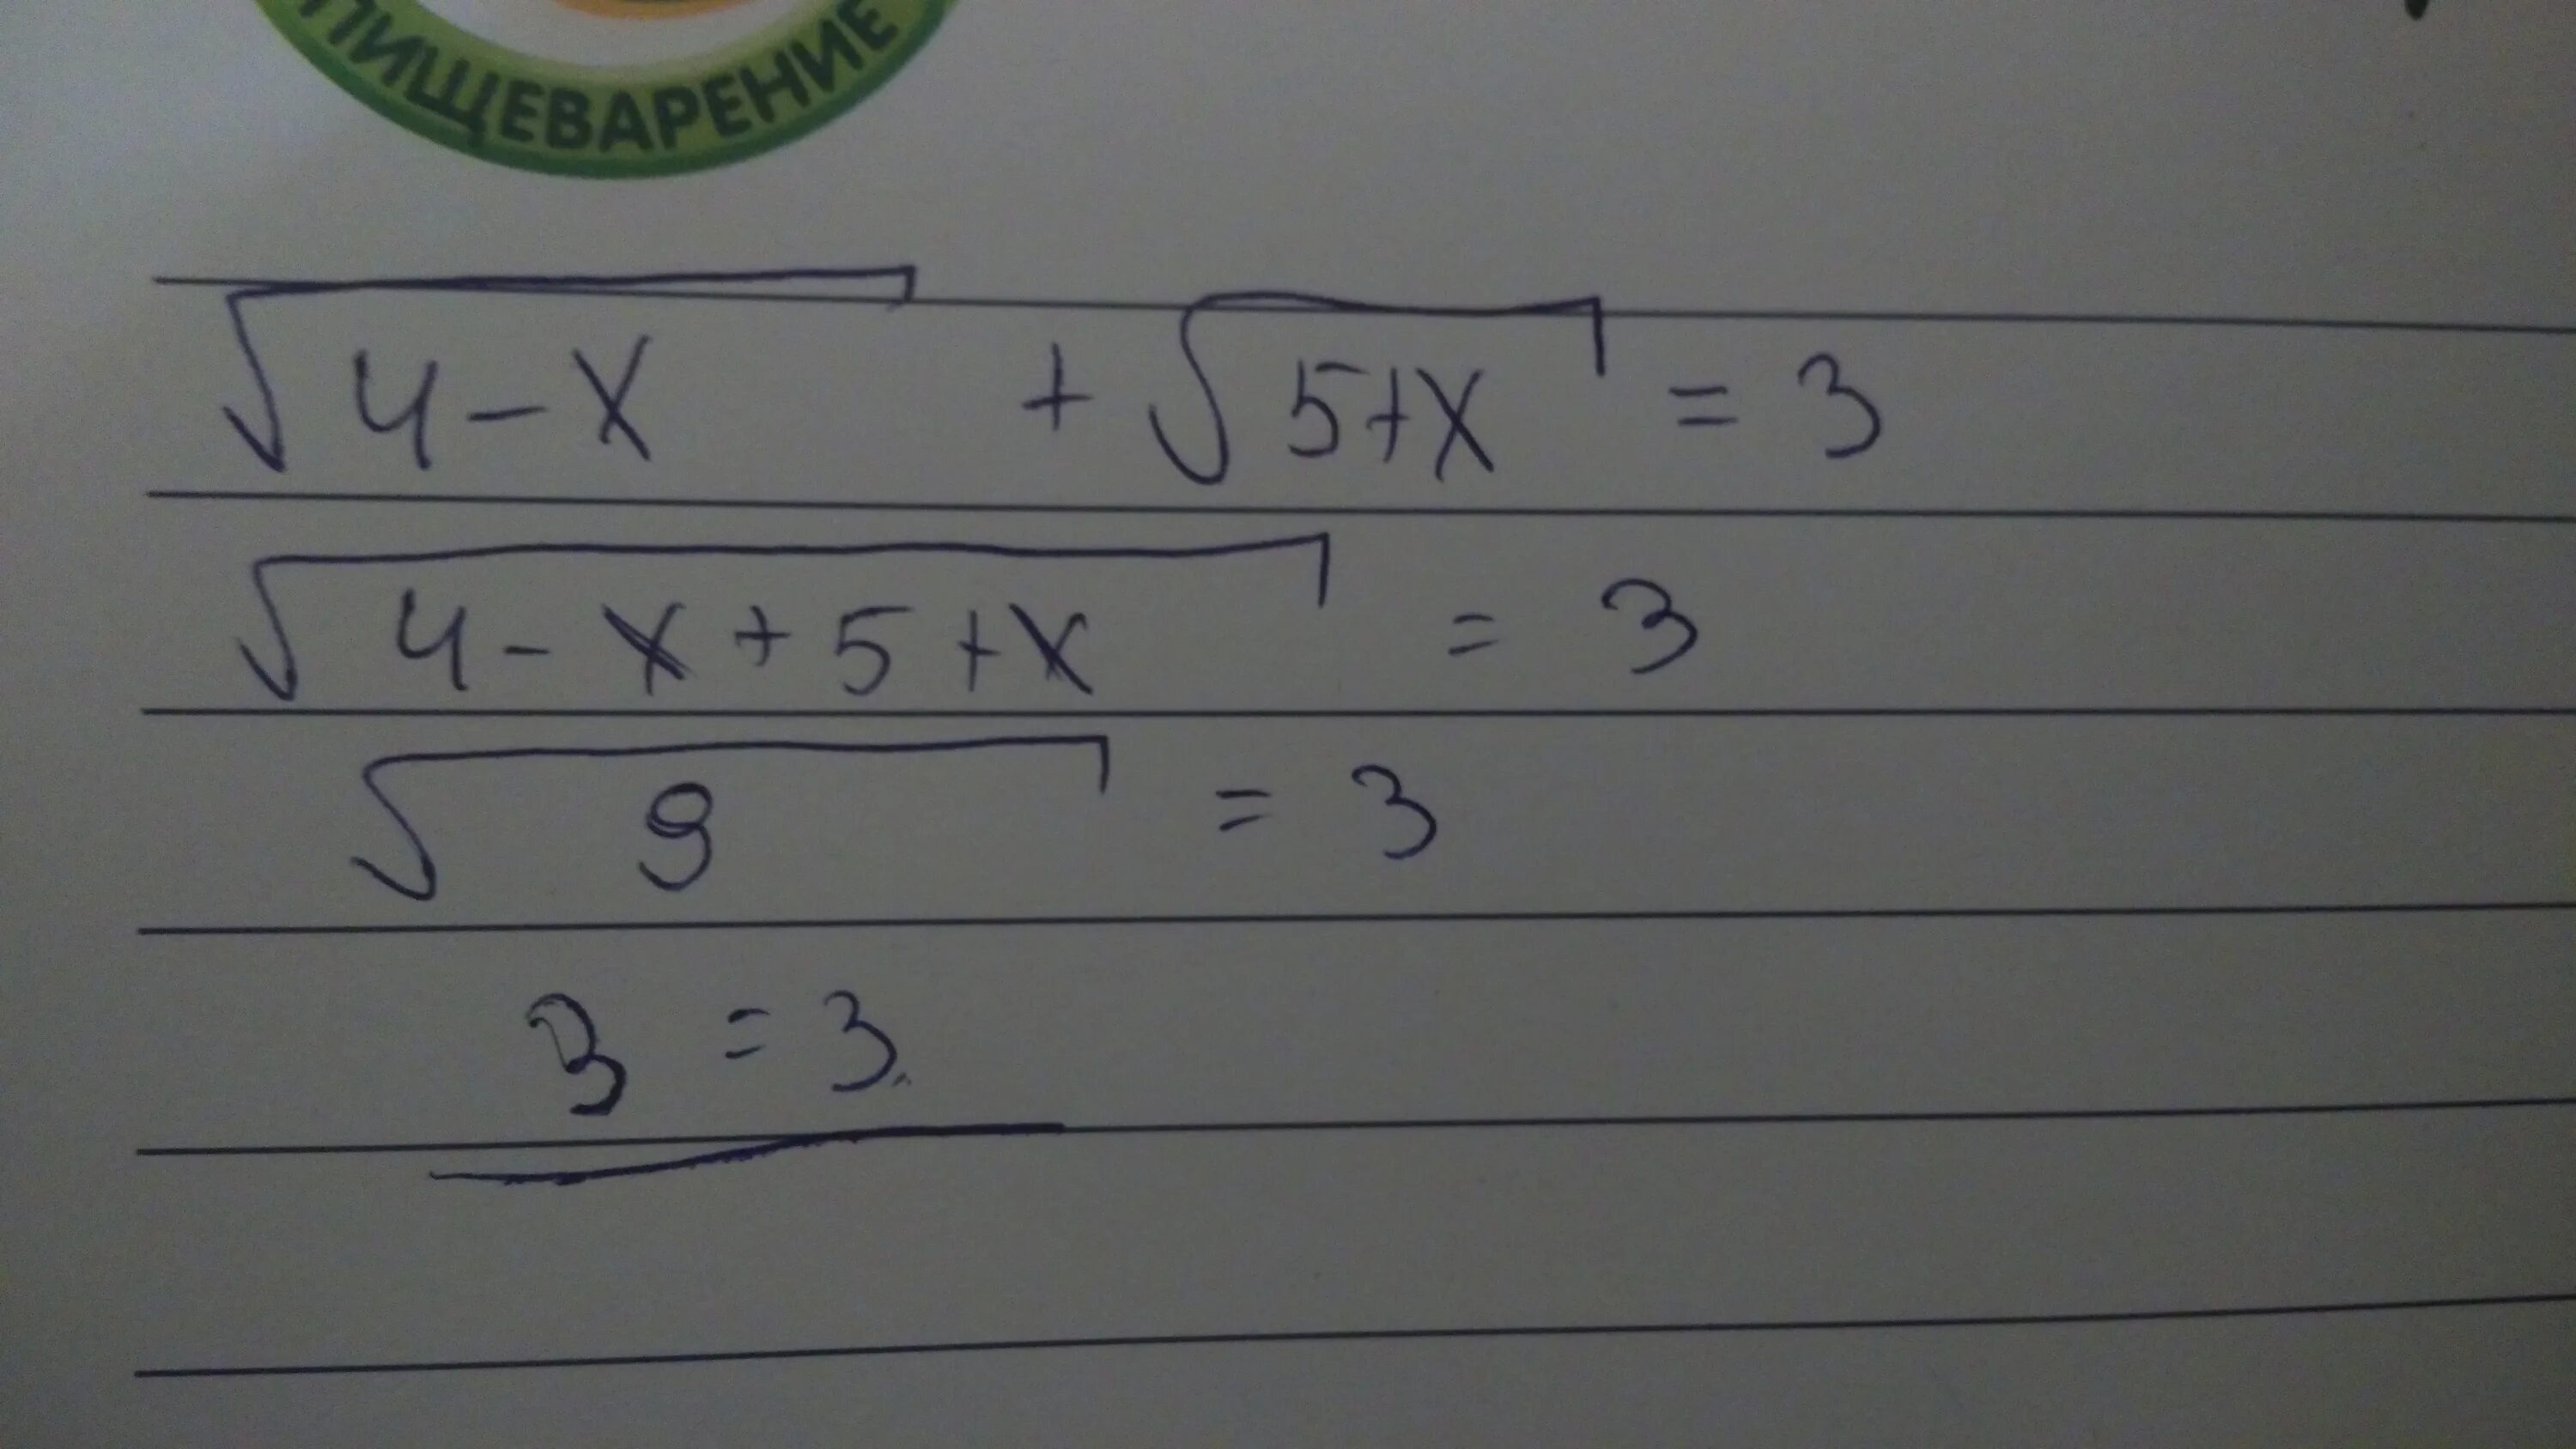 ПИЩЕВАРЕНИЕ
√4-x + √5+x = 3
√4-x+5+x = 3
√9 = 3
3 = 3